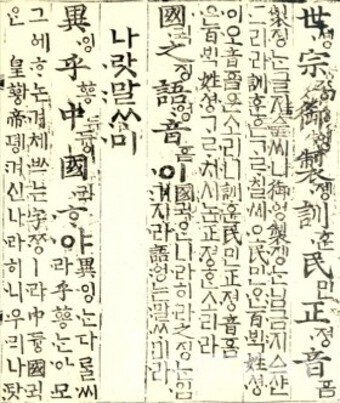 世솅宗종御ᅌᅥᆼ製졩訓훈民민正졍音ᅙᅳᆷ
製졩ᄂᆞᆫ글지ᅀᅳᆯ씨니御ᅌᅥᆼ製졩ᄂᆞᆫ님금지ᅀᅳ샨
그리라訓훈은ᄀᆞᄅᆞ칠씨오民민ᄋᆞᆫ百ᄇᆡᆨ姓셩
이오音ᅙᅳᆷ은소리니訓훈民민正졍音ᅙᅳᆷ
은百ᄇᆡᆨ姓셩ᄀᆞᄅᆞ치시논正졍ᄒᆞᆫ소리라
國귁之징語ᅌᅥᆼ音ᅙᅳᆷ이
國귁ᄋᆞᆫ나라히라之징ᄂᆞᆫ입
겨지라語ᅌᅥᆼ는말ᄊᆞ미라
나랏말ᄊᆞ미
異잉乎ᅘᅩᆼ中듕國귁ᄒᆞ야
異잉ᄂᆞᆫ다ᄅᆞᆯ씨
라乎ᅘᅩᆼᄂᆞᆫ아모
그ᅌᅦᄒᆞ논겨체ᄡᅳ는字ᄍᆞᆼㅣ라中듕國귁
ᄋᆞᆫ 皇ᅘᅪᆼ帝뎽겨신나라히니우리나랏